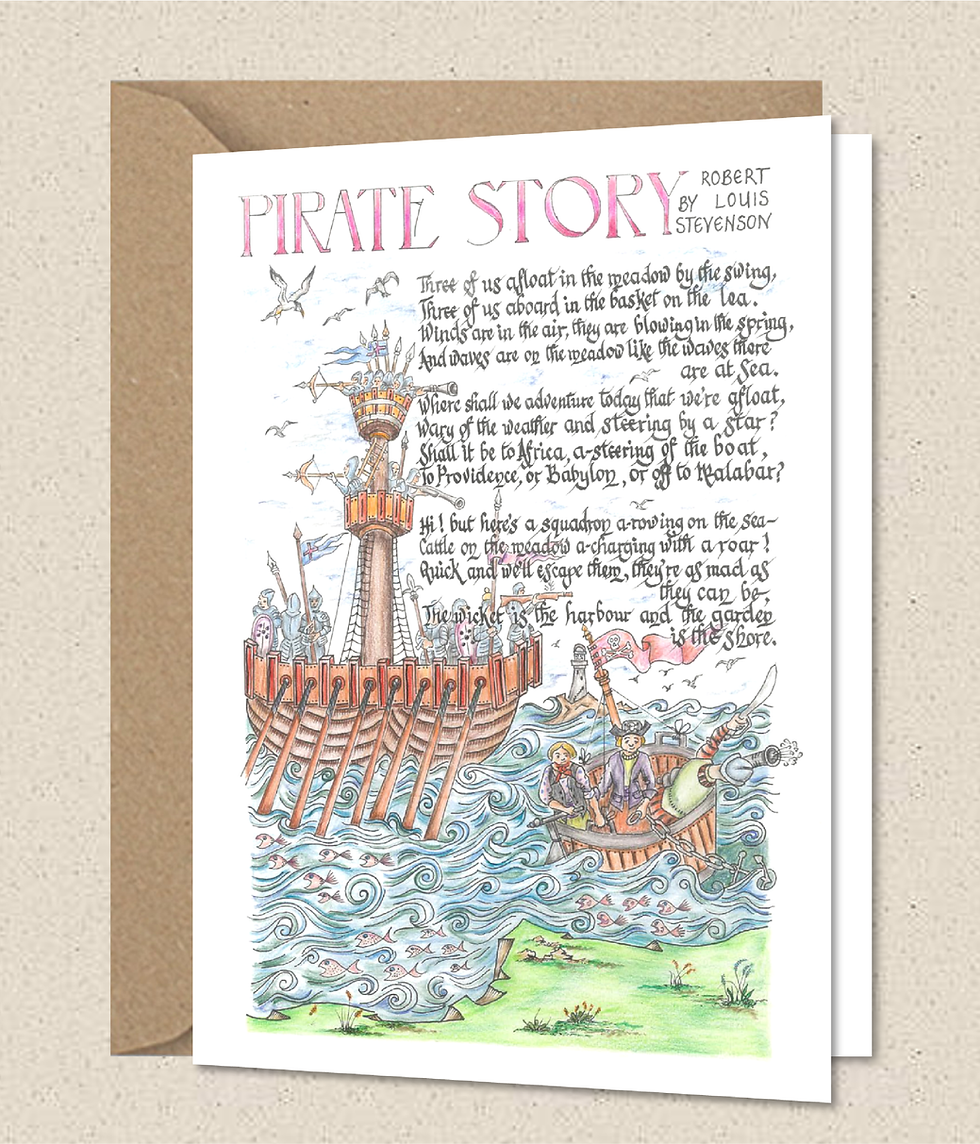 PIRATE STORY
BY ROBERT LOUIS STEVENSON
Three of us afloat in the meadow by the swing,
Three of us aboard in the basket on the lea.
Winds are in the air, they are blowing in the spring,
And waves are on the meadow like the waves there
are at Sea.
Where shall we adventure today that we're afloat,
Wary of the weather and steering by a star?
Shall it be to Africa, a-steering of the boat,
To Providence, or Babylon, or off to Malabar?
Hi! but here's a squadron a-rowing on the Sea—
Cattle on the meadow a-charging with a roar!
Quick and we'll escape them, they're as mad as
they can be,
The wicket is the harbour and the garden
is the Shore.